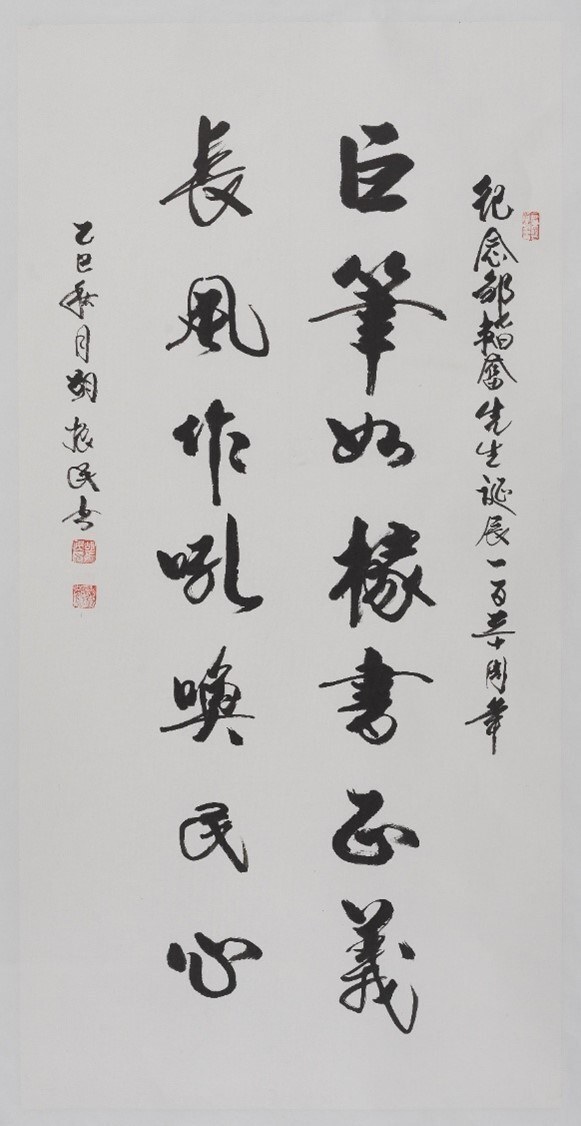 纪念邹韬奋先生诞辰一百三十周年
巨筆如椽書正義
長風作吼喚民心
乙巳秋月胡振民书